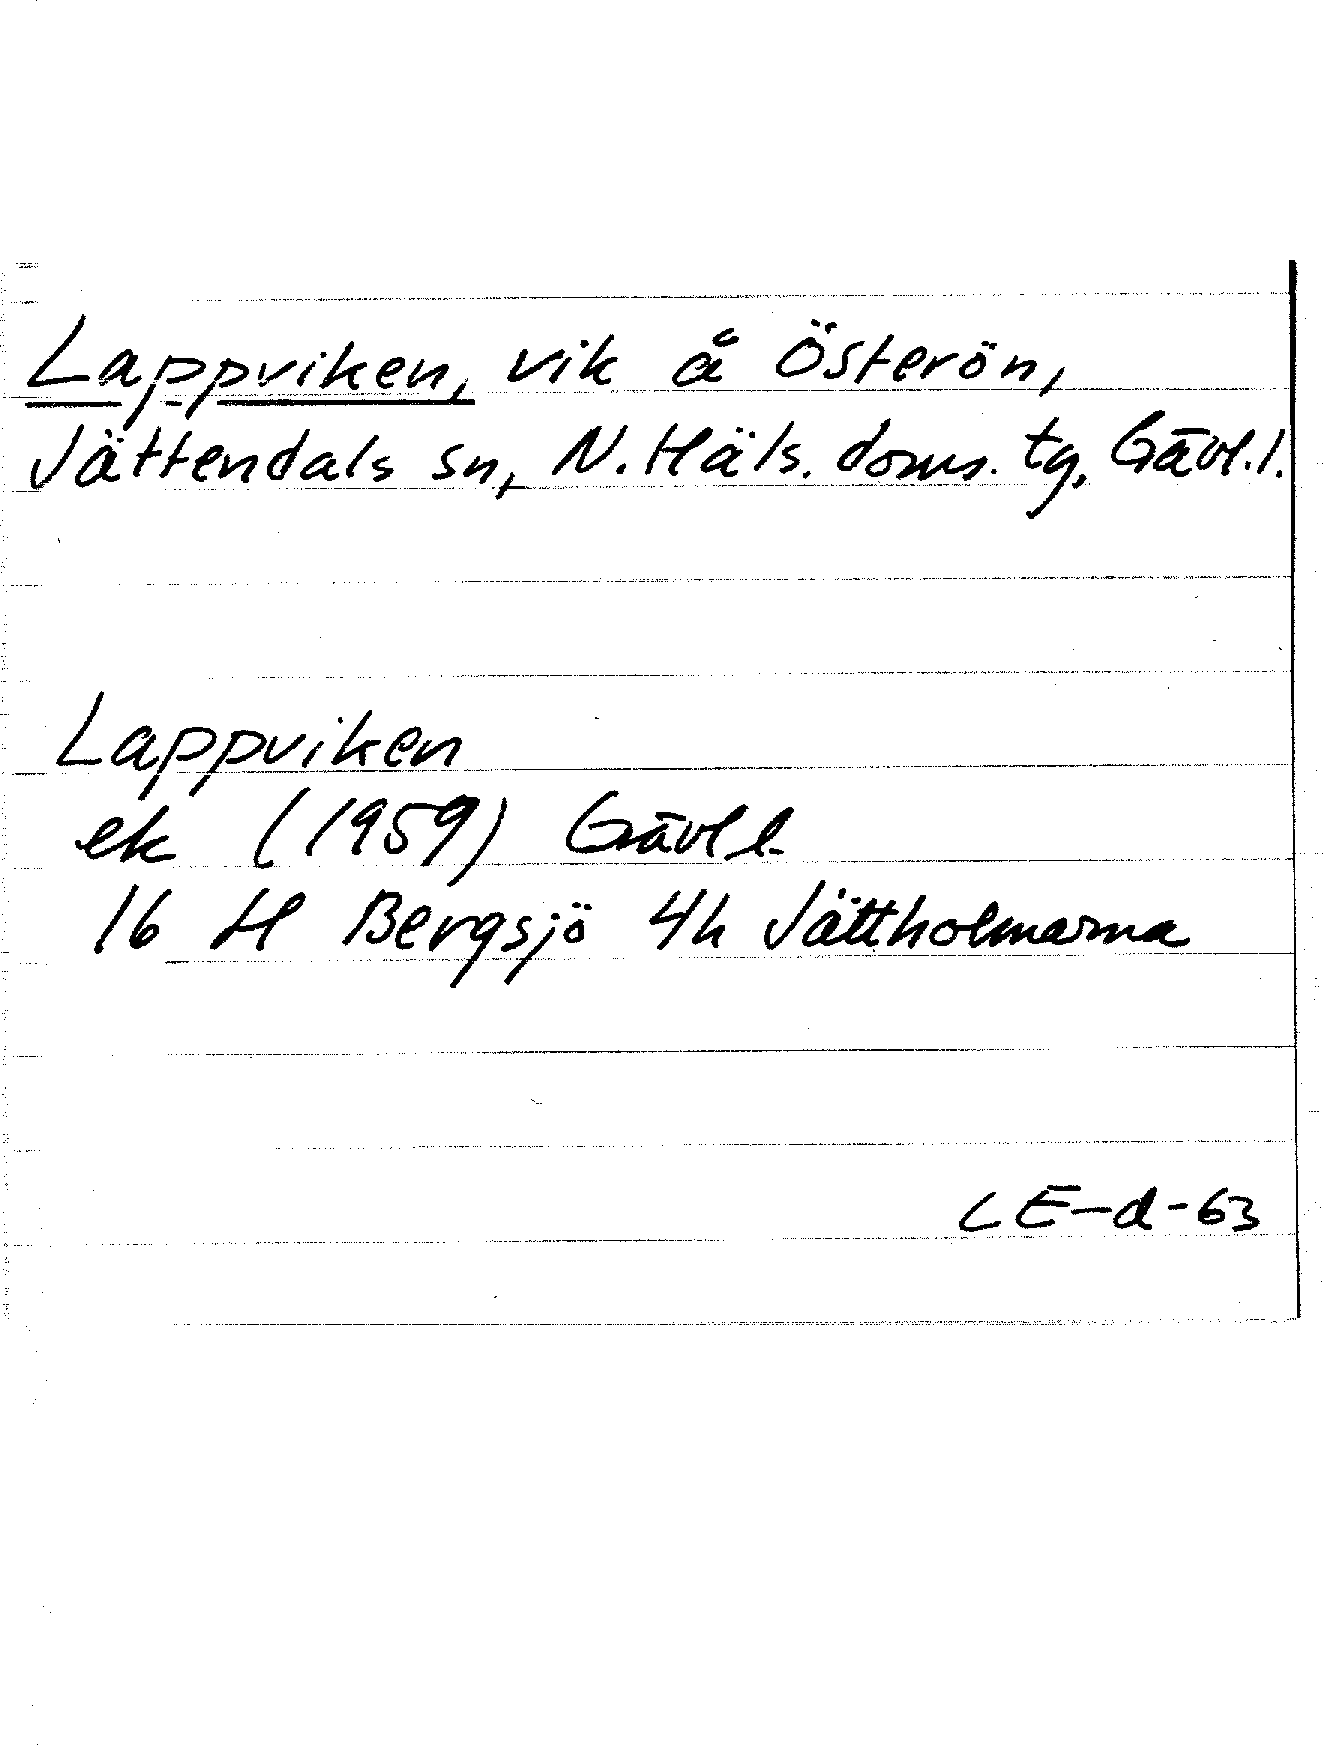 Lappviken, vik å Österön,
Jättendals sn, N. Häls. doms. tg, Gävl.l.
Lappviken
ek (1959) Gävl l.
16 H Bergsjö 4h Jättholmarna
LE-d-63